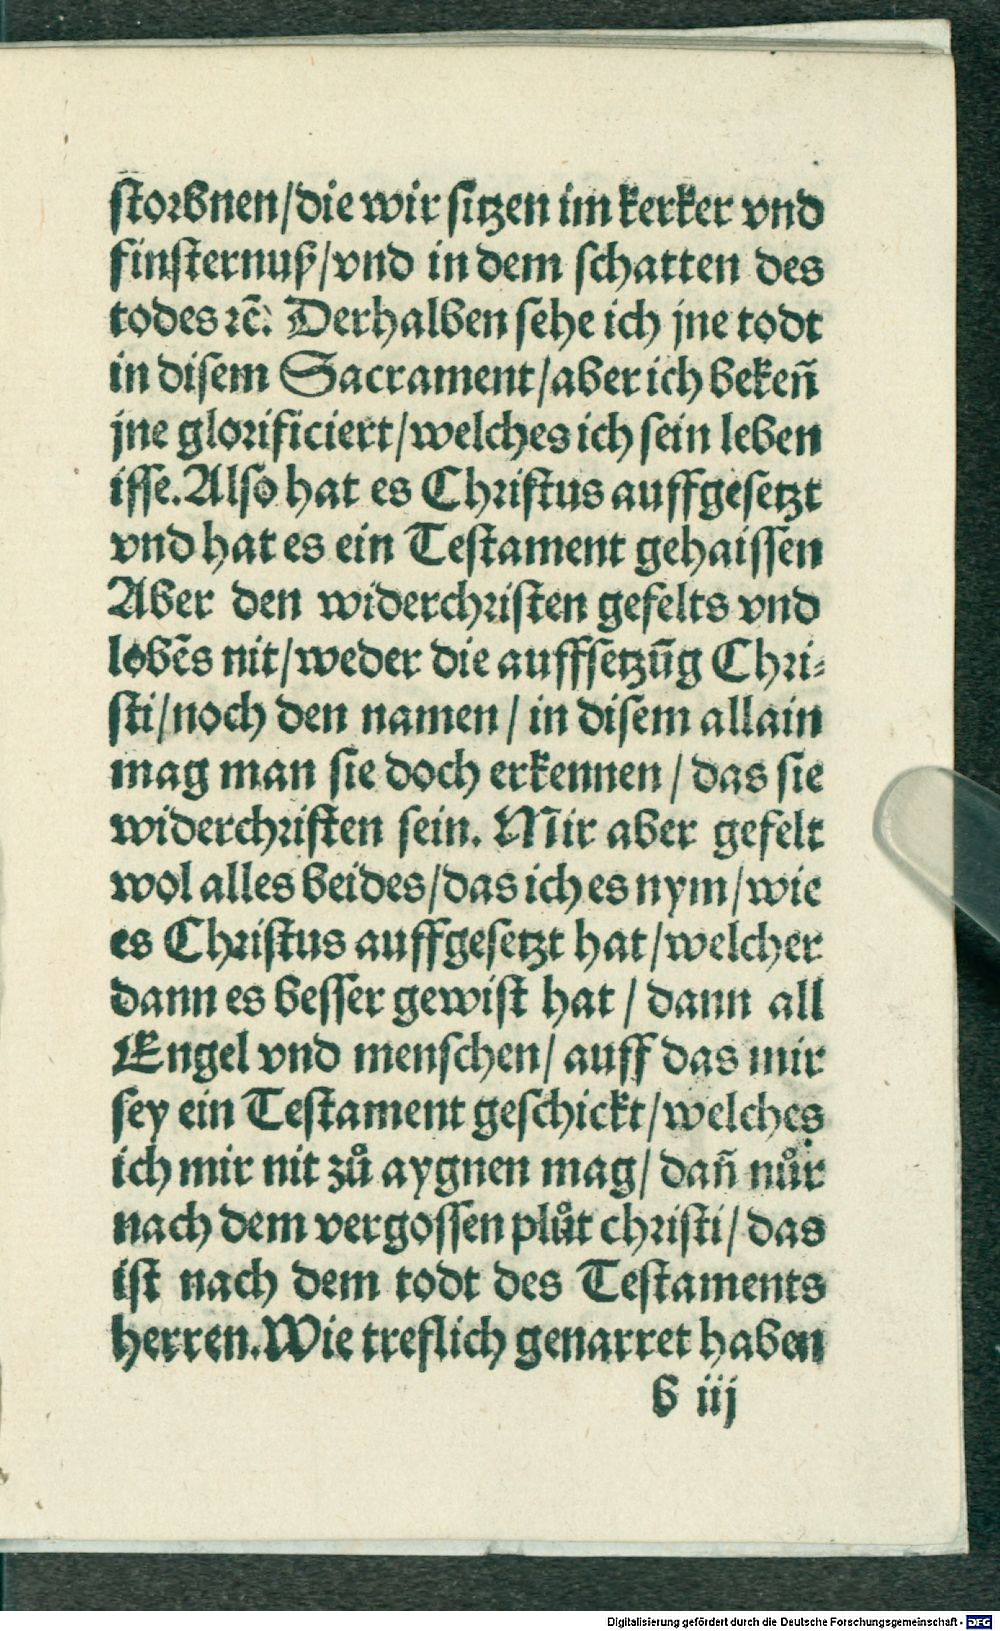 storbnen/die wir sitzen im kerker vnd
finsternuß/vnd in dem schatten des
todes ꝛc̄. Derhalben sehe ich jne todt
in disem Sacrament/aber ich bekeñ
jne glorificiert/welches ich sein leben
isse. Also hat es Christus auffgesetzt
vnd hat es ein Testament gehaissen
Aber den widerchristen gefelts vnd
lobēs nit/weder die auffsetzūg Chri⸗
sti/noch den namen/in disem allain
mag man sie doch erkennen/das sie
widerchristen sein. Mir aber gefelt
wol alles beides/das ich es nym/wie
es Christus auffgesetzt hat/welcher
dann es besser gewist hat/dann all
Engel vnd menschen/auff das mir
sey ein Testament geschickt/welches
ich mir nit zů aygnen mag/dañ nůr
nach dem vergossen plůt christi/das
ist nach dem todt des Testaments
herren. Wie treflich genarret haben
b iij
Digitalisierung gefördert durch die Deutsche Forschungsgemeinschaft - DFG